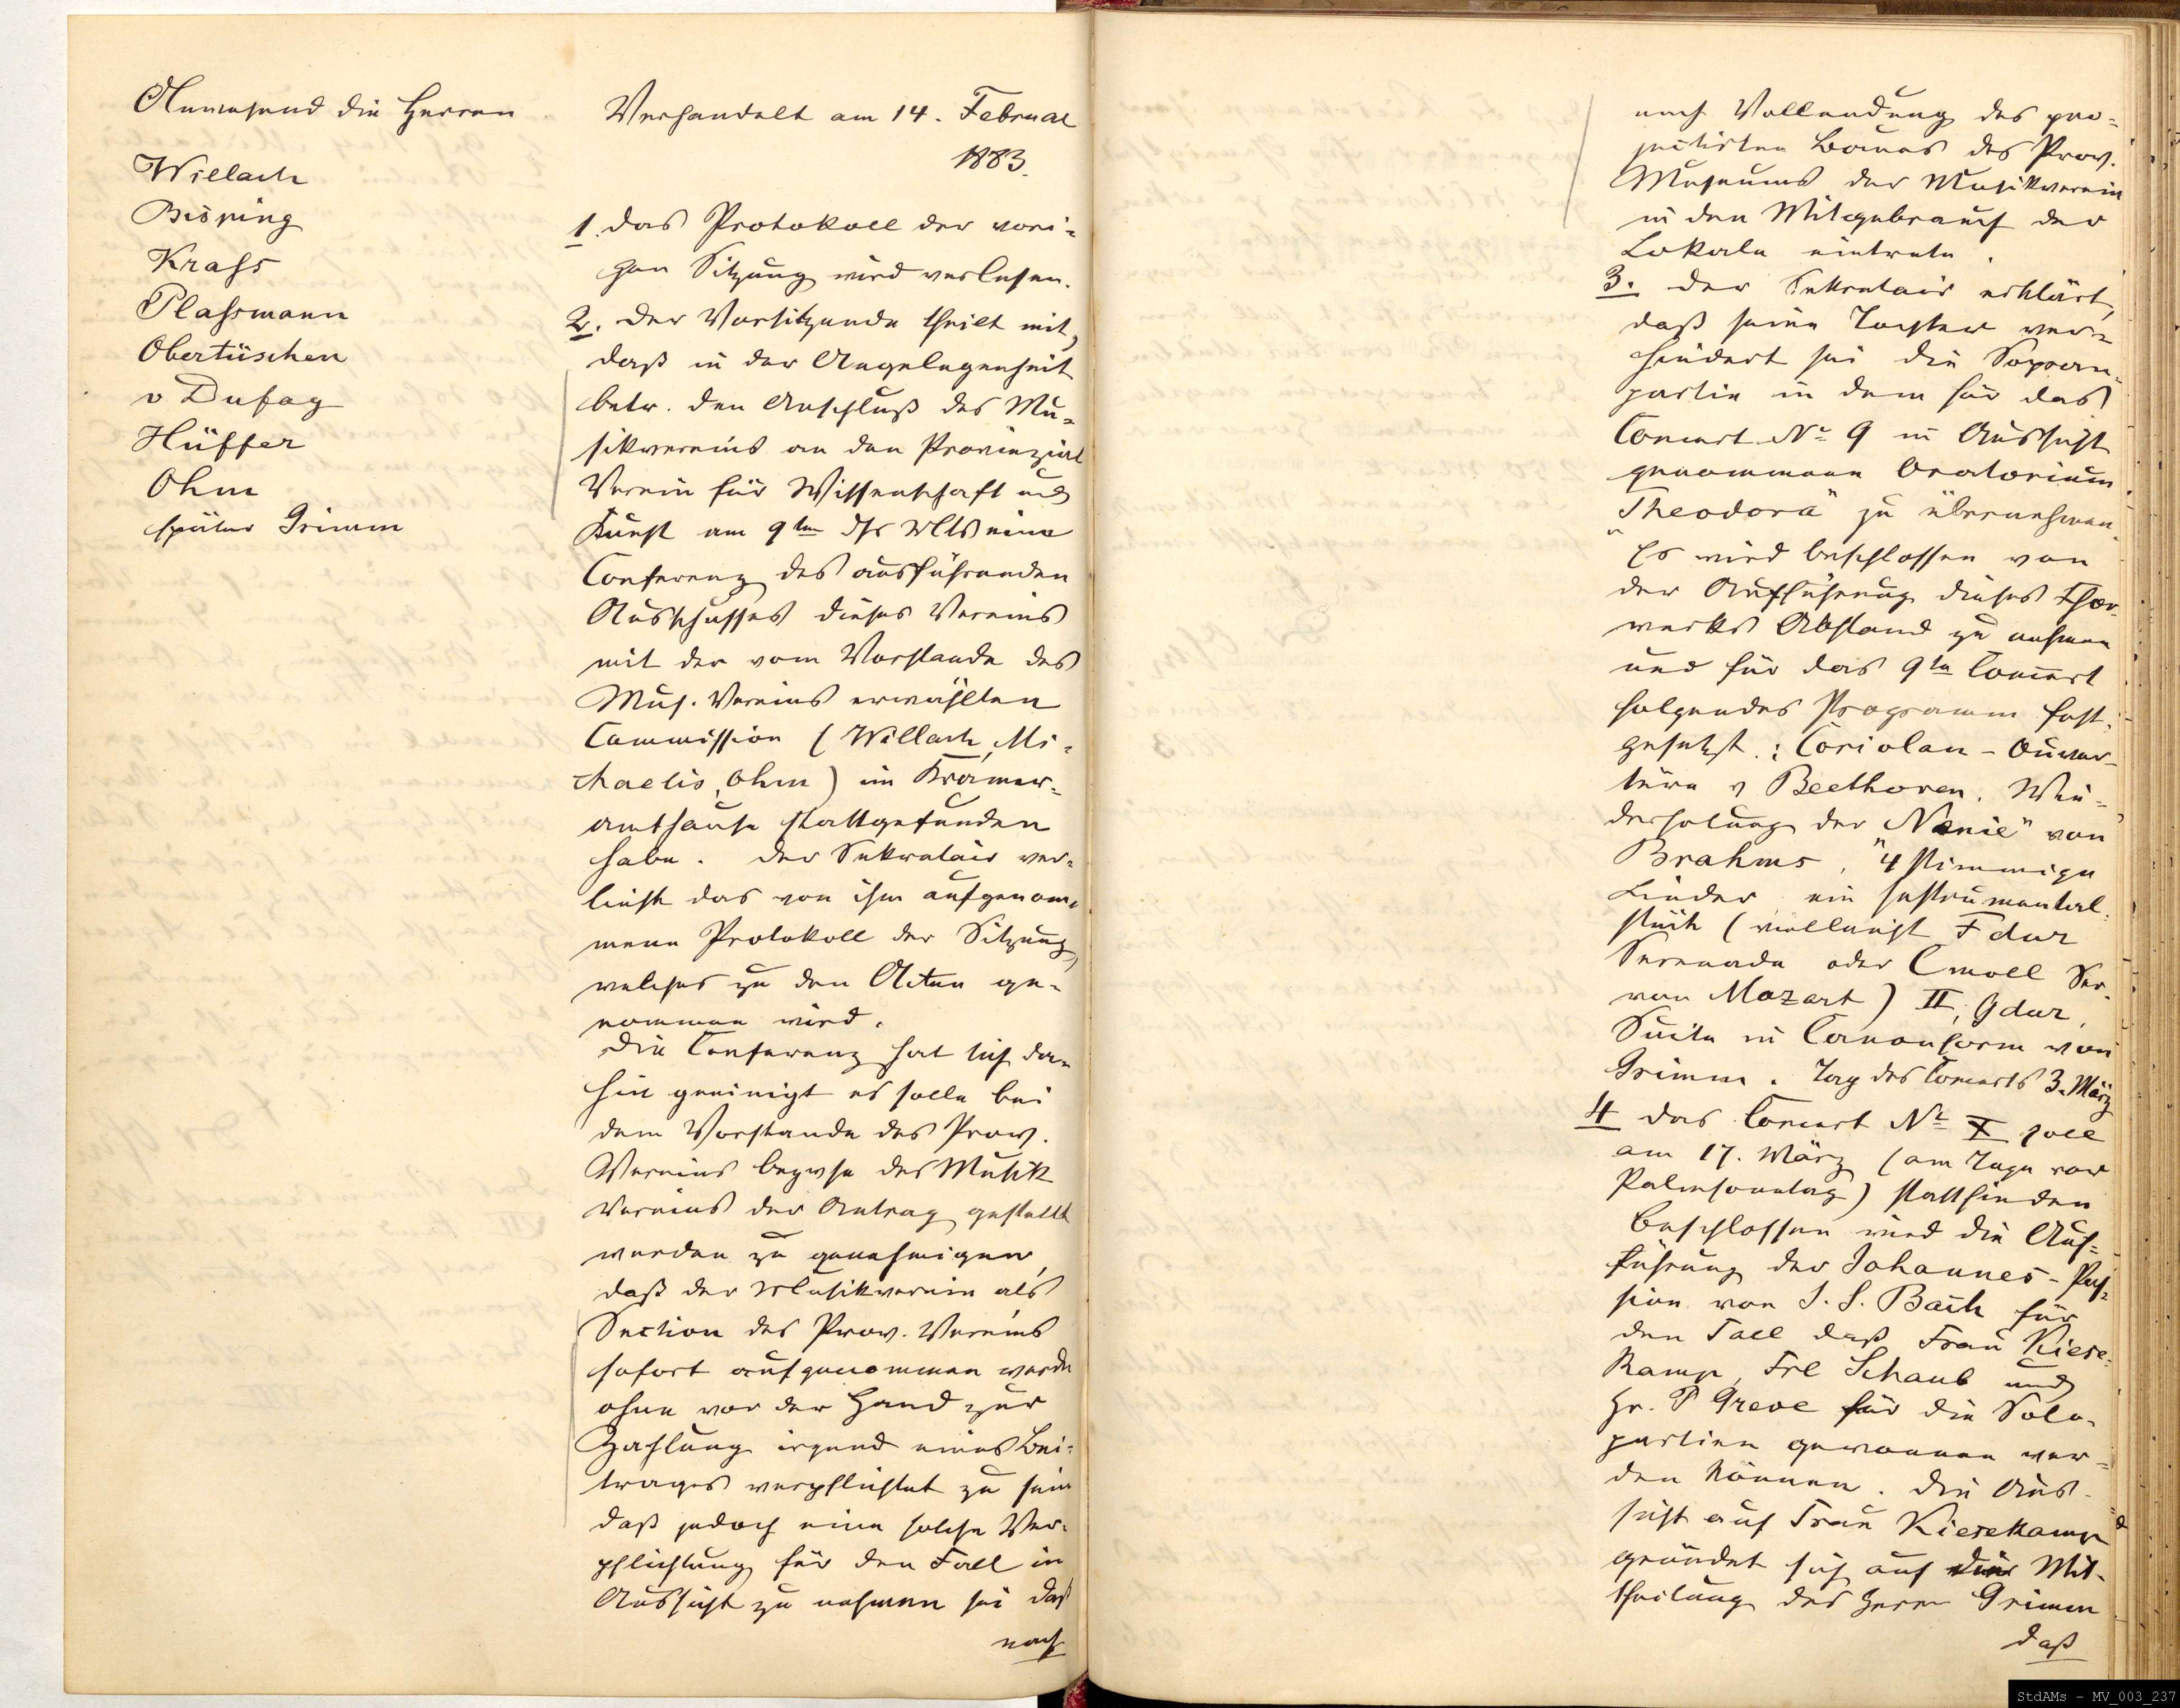 Anwesend die Herren
Willach
Bisping
Krass
Plassmann
Obertüschen
v Dufay
Hüffer
Ohm
später Grimm
Verhandelt am 14. Februar
1883.
1. Das Protokoll der vori-
gen Sitzung wird verlesen.
2. Der Vorsitzende theilt mit,
daß in der Angelegenheit
betr. den Anschluß des Mu-
sikvereins an den Provinzial
Verein für Wissenschaft und
Kunst am 9ten ds Mts eine
Conferenz des ausführenden
Ausschusses dieses Vereins
mit der vom Vorstande des
Mus. Vereins erwählten
Commission (Willach, Mi-
chaelis, Ohm) im Krämer-
amthause stattgefunden
habe. Der Sekretair ver-
liest das von ihm aufgenom-
mene Protokoll der Sitzung,
welches zu den Akten ge-
nommen wird.
Die Conferenz hat sich da-
hin geeinigt es solle bei
dem Vorstande des Prov.
Vereins bezwse des Musik
Vereins der Antrag gestellt
werden zu genehmigen,
daß der Musikverein als
Section des Prov. Vereins
sofort aufgenommen werde
ohne vor der Hand zur
Zahlung irgend eines Bei-
trages verpflichtet zu sein
daß jedoch eine solche Ver-
pflichtung für den Fall in
Aussicht zu nehmen sei daß
nach
nach Vollendung des pro-
jectirten Baues des Prov.
Museums der Musikverein
in den Mitgebrauch der
Lokale eintrete.
3. Der Sekretair erklärt,
daß seine Tochter ver-
hindert sei die Sopran-
partie in dem für das
Concert No 9 in Aussicht
genommenen Oratorium
„Theodora" zu übernehmen
Es wird beschlossen von
der Aufführung dieses Chor-
werks Abstand zu nehmen
und für das 9te Concert
folgendes Programm fest-
gesetzt: Coriolan-Ouver-
türe v Beethoven. Wie-
derholung der „Nänie" von
Brahms, 4 stimmige
Lieder ein Instrumental-
stück (vielleicht F dur
Serenade oder C moll Ser.
von Mozart) II, G dur,
Suite in Canonform von
Grimm. Tag des Concerts 3. März
4 Das Concert Nr X soll
am 17. März (am Tage vor
Palmsonntag) stattfinden
Beschlossen wird die Auf-
führung der Johannes-Pas-
sion von J. S. Bach für
den Fall daß Frau Kiese-
kamp, Frl Schaub und
Hr. P Greve für die Solo-
partien gewonnen wer-
den können. Die Aus-
sicht auf Frau Kiesekamp
gründet sich auf die Mit-
theilung des Herrn Grimm
daß
StdAMs - MV_003_237